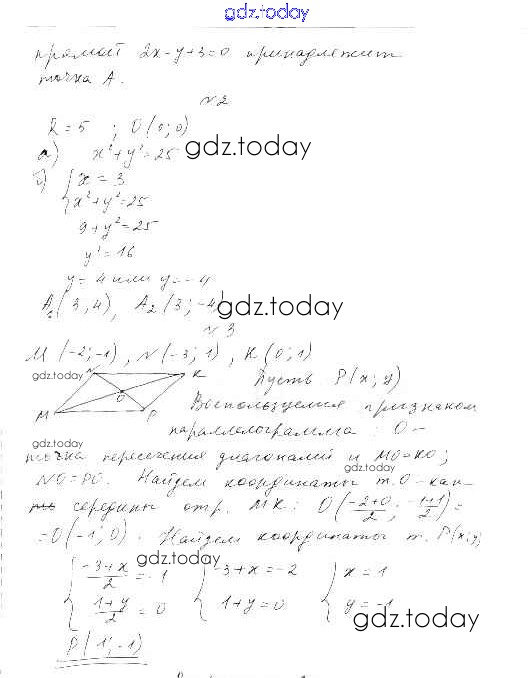 gdz.today
прямой 2x-y+3=0 принадлежит
точка A.
№2
R=5 ; O(0;0)
а) x²+y²=25 gdz.today
б) { x=3
x²+y²=25
9+y²=25
y²=16
y=4 или y=-4
A₁(3,4), A₂(3;-4) gdz.today
№3
M(-2;-1), N(-3;1), K(0;1)
gdz.today N K Пусть P(x;y)
O
M P Воспользуемся признаком
параллелограмма: O-
gdz.today
точка пересечения диагоналей и MO=KO;
gdz.today
NO=PO. Найдем координаты т.O-как
середины отр. MK: O(-2+0/2; -1+1/2)=
=O(-1;0). Найдем координаты т. P(x;y)
gdz.today
{ -3+x/2=-1 { -3+x=-2 { x=1
1+y/2=0 1+y=0 y=-1
gdz.today
P(1;-1)